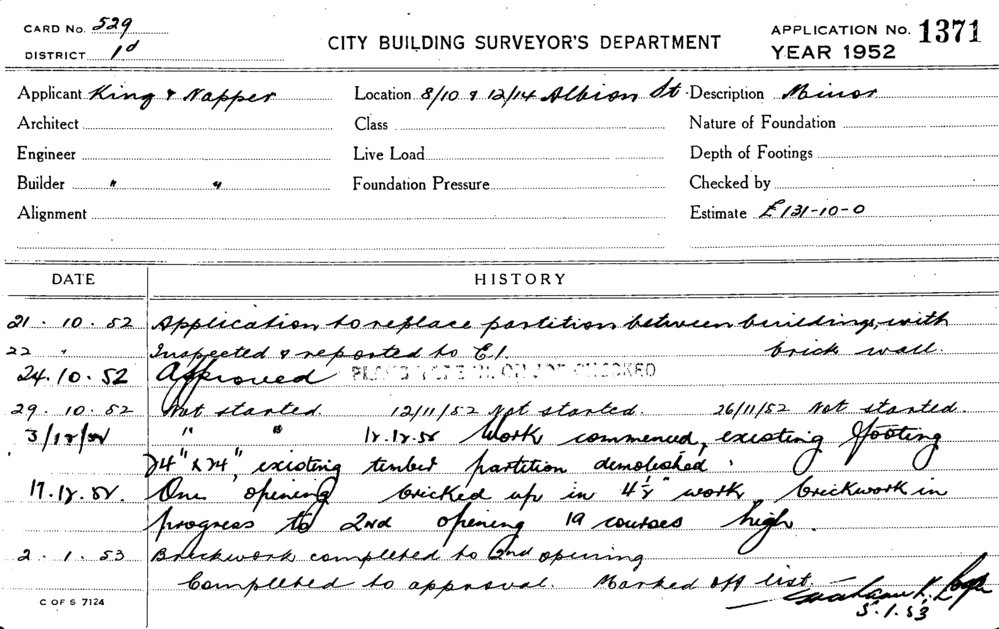 CARD No. 529
DISTRICT 1d
CITY BUILDING SURVEYOR'S DEPARTMENT
APPLICATION No. 1371
YEAR 1952
Applicant King & Napper Location 8/10 & 12/14 Albion St. Description Minor
Architect Class Nature of Foundation
Engineer Live Load Depth of Footings
Builder " " Foundation Pressure Checked by
Alignment Estimate £131-10-0
DATE HISTORY
21. 10. 52 Application to replace partition between buildings, with
22 " Inspected & reported to E.I. brick wall.
24. 10. 52 Approved PLANS CHECKED
29. 10. 52 Not started. 12/11/52 Not started. 26/11/52 Not started.
3/12/52 " " 12.12.52 Work commenced, existing footing
24" x 24" existing timber partition demolished.
17.12.52. One opening bricked up in 4½" work, brickwork in
progress to 2nd opening 19 courses high.
2. 1. 53 Brickwork completed to 2nd opening
Completed to approval. Marked off list.
5.1.53
C OF S 7124